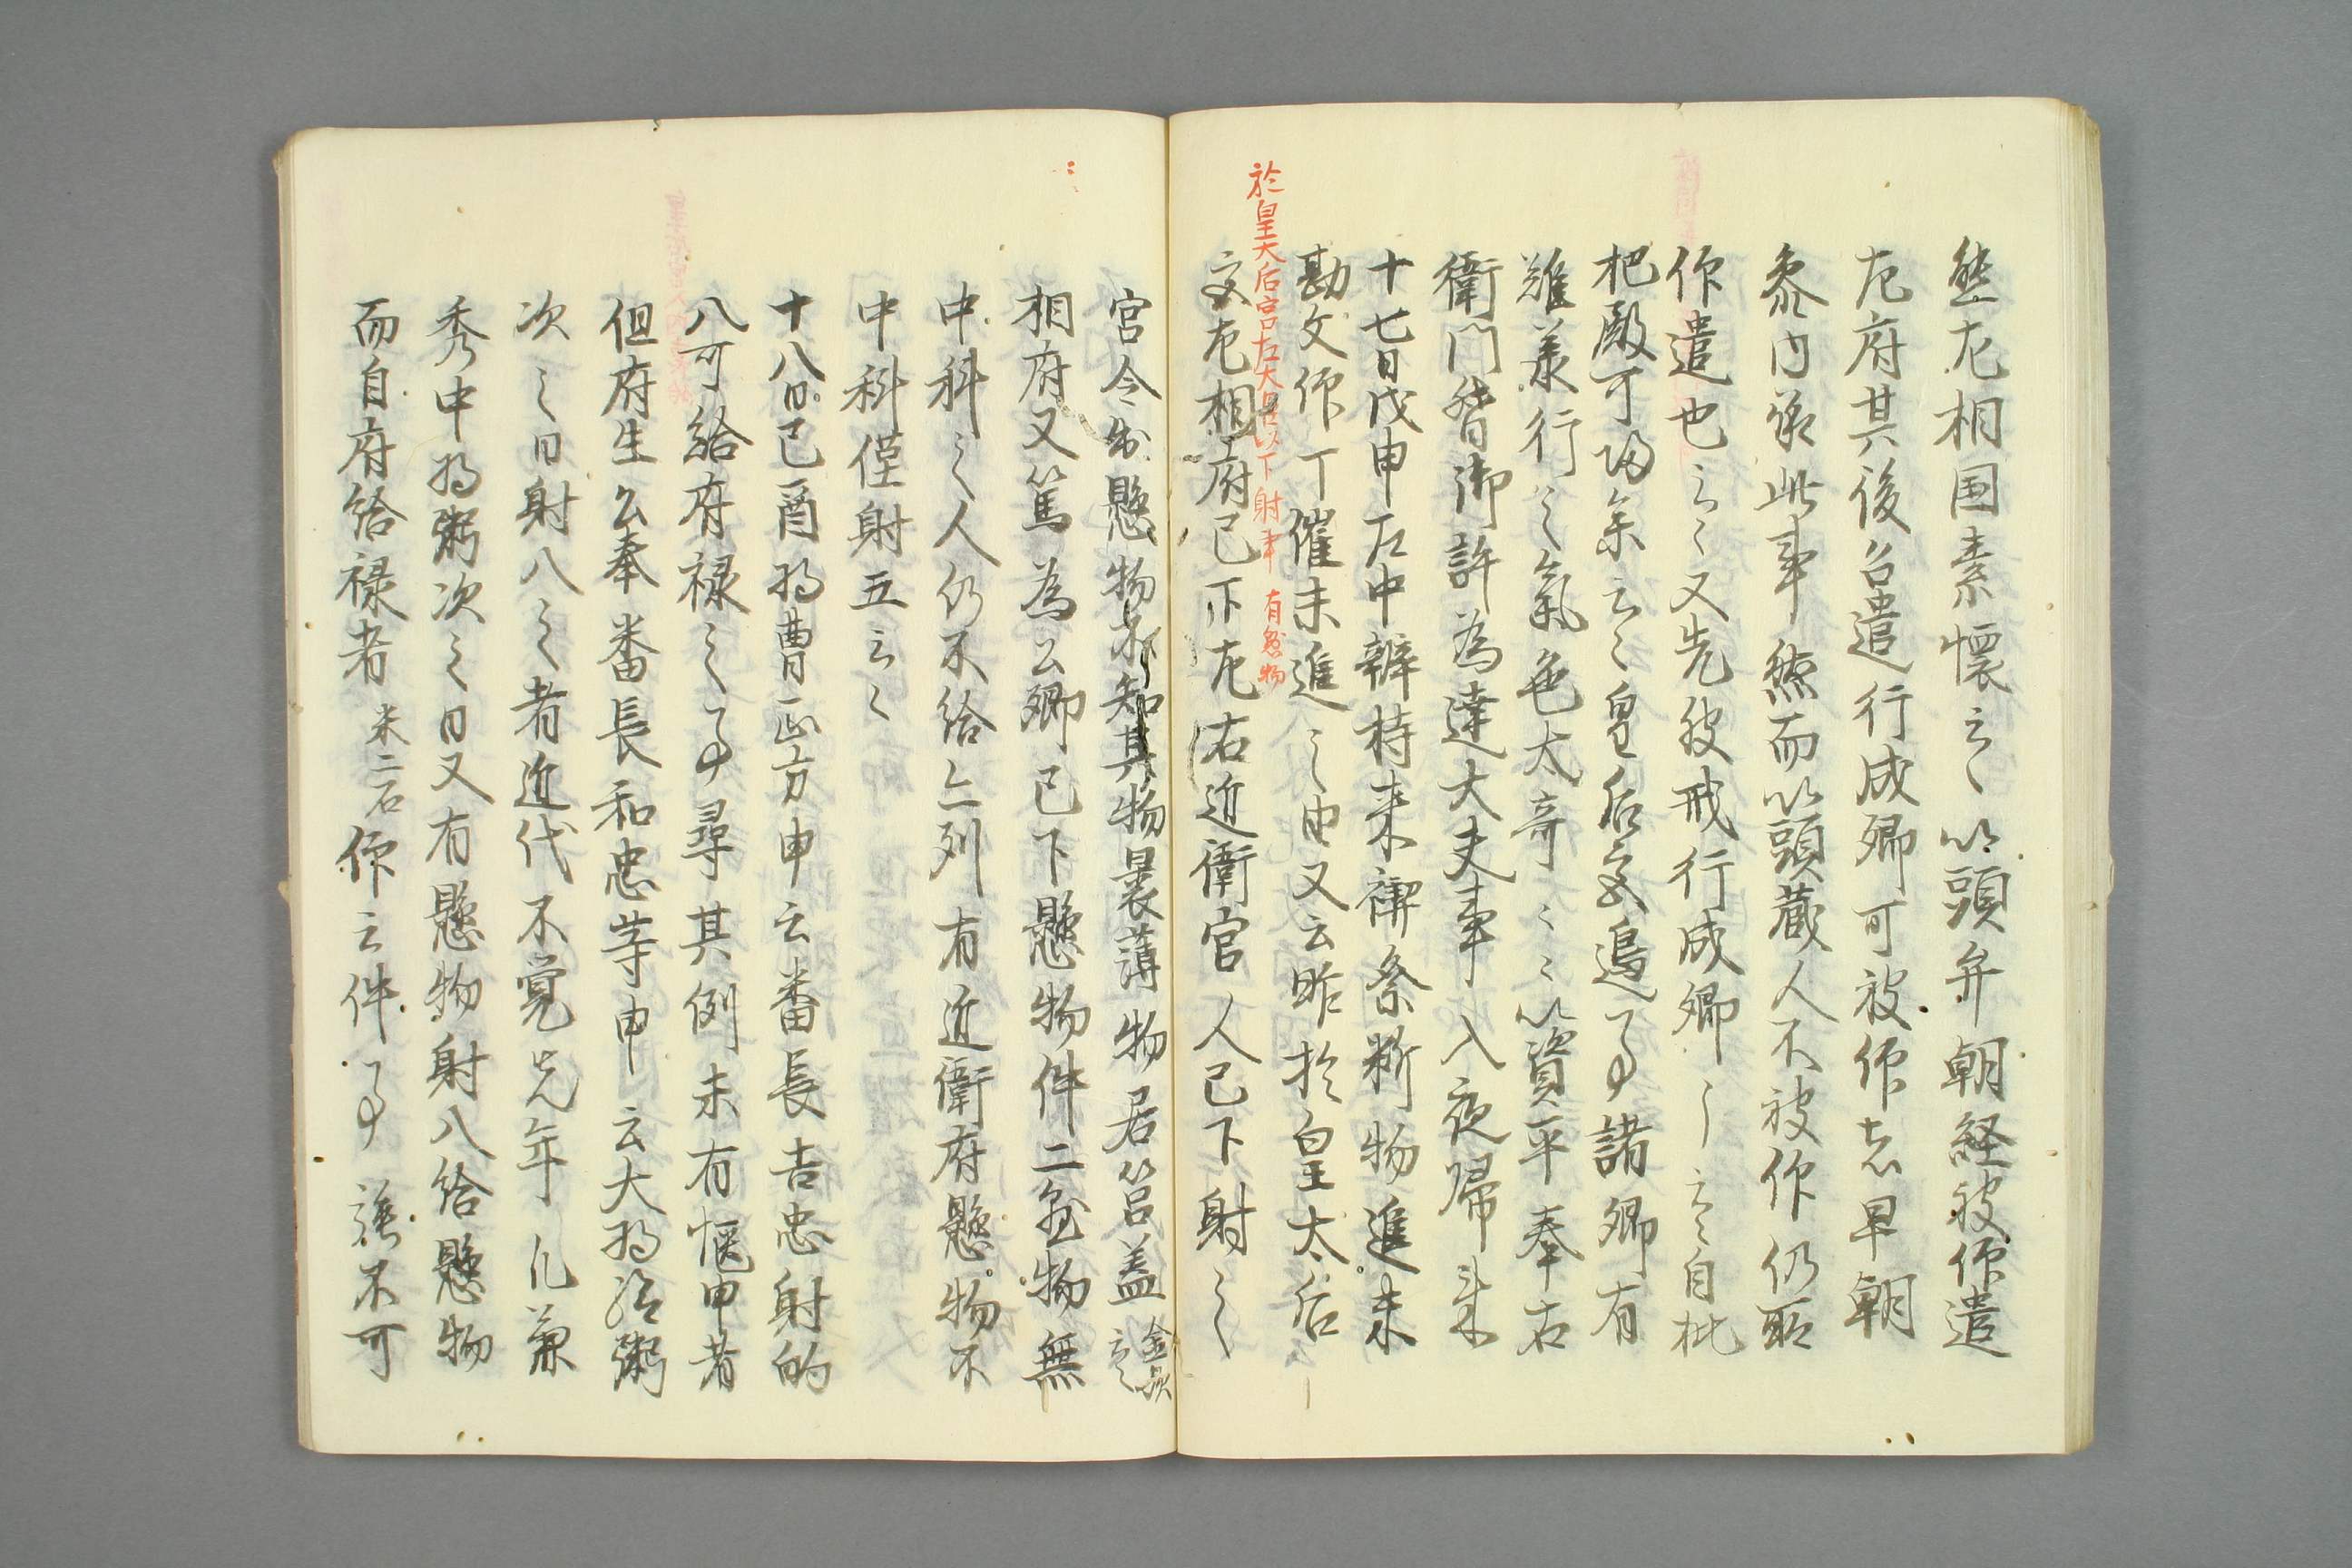 然左相国素懐云々以頭弁朝経被仰遣
左府其後召遣行成卿可被仰者早朝
参内承此事然而以頭蔵人不被仰仍所
仰遣也云々又先被戒行成卿了云々自枇
杷殿可帰参云々皇后被過了諸卿有
難兼行之氣色太奇々々以資平奉右
衛門督御許為達大夫事入夜帰来
十七日戊申左中辨持来禊祭新物進未
勘文仰可催未進之由又云昨於皇太后
於皇太后宮左大臣以下射事 有懸物
宮左相府已下左右近衛官人已下射之
宮令出懸物不知其物裹薄物居筥盖
相府又篤為公卿已下懸物件二懸物無
中科之人仍不給上列有近衛府懸物不
中科僅射五云々
十八日己酉将曹正方申云番長吉忠射的
八可給府禄之了尋其例未有慥申者
但府生公奉番長和忠等申云大将給粥
次之日射八之者近代不覚先年凡兼
秀中将粥次之日又有懸物射八給懸物
而自府給禄者 米二石 仰云件了誰不可